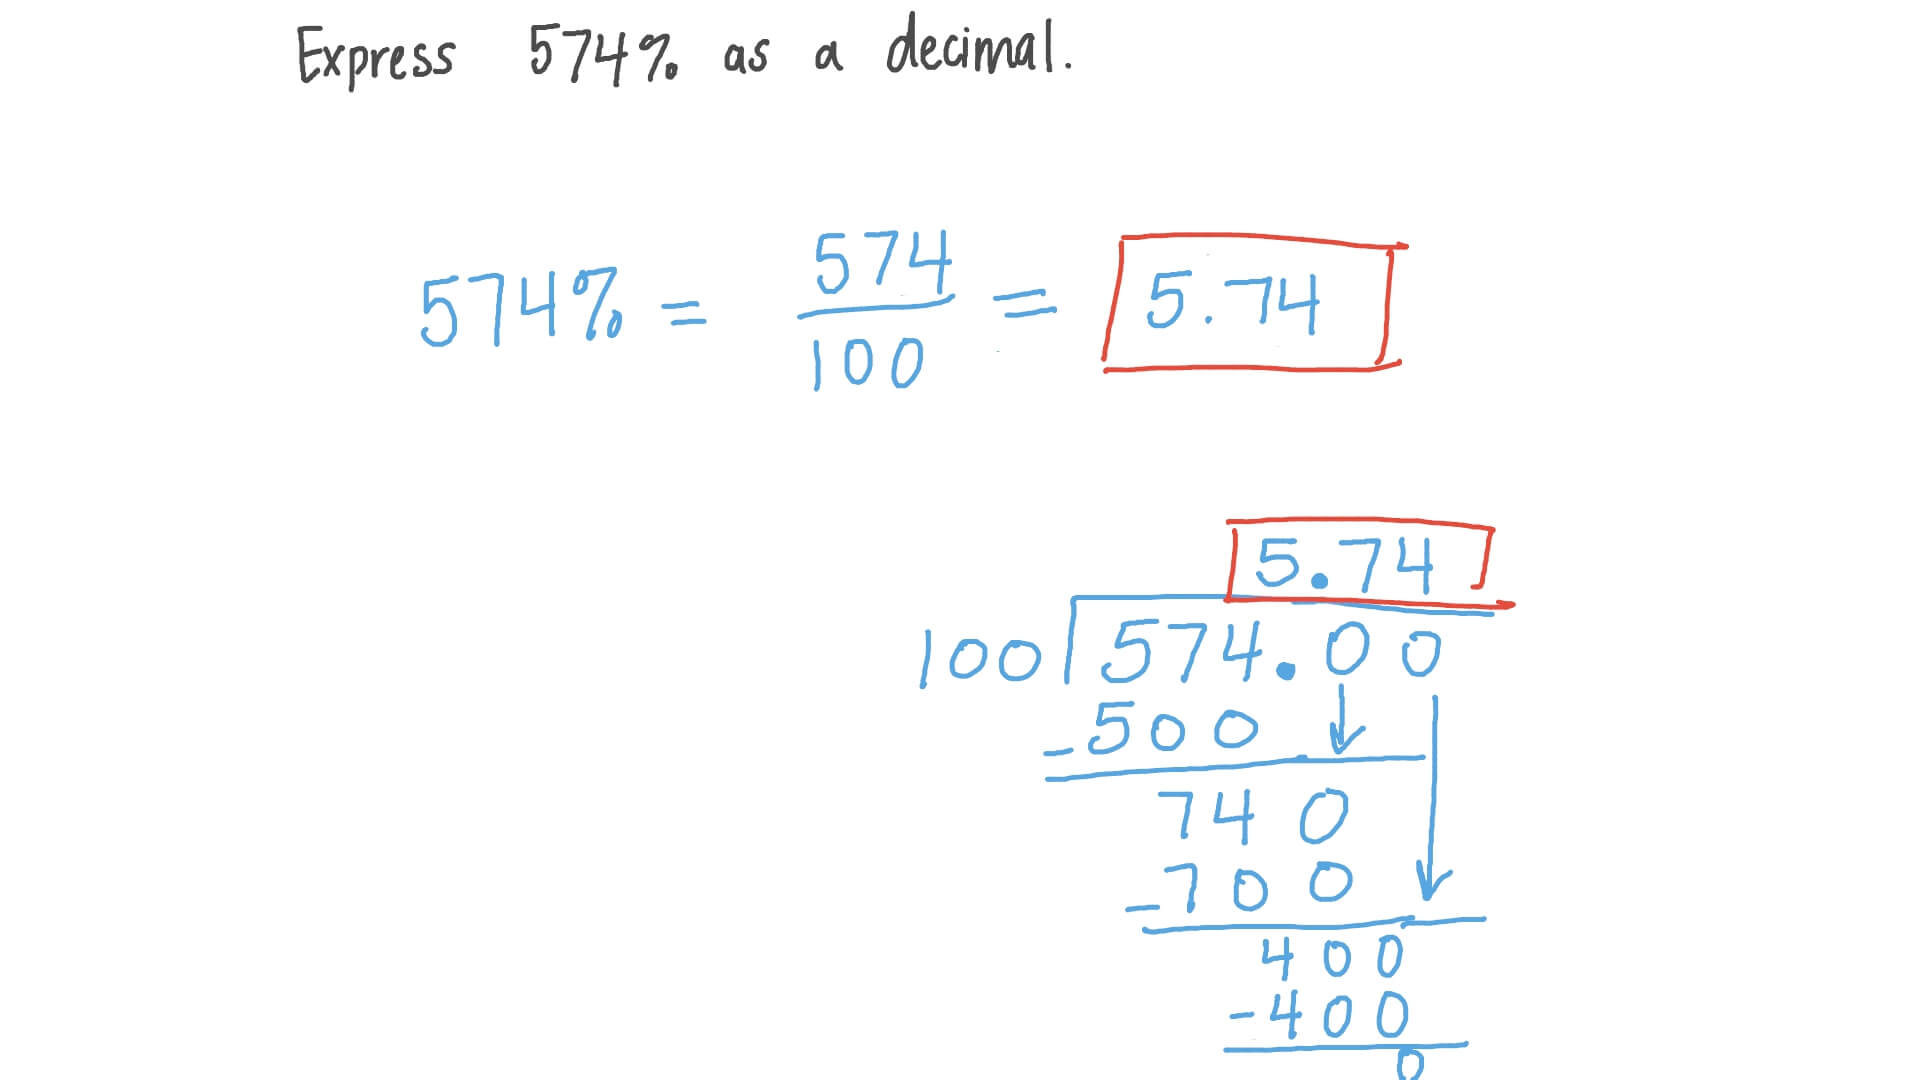 Express 574% as a decimal.
574% = 574/100 = 5.74
5.74
100 574.00
-500
740
-700
400
-400
0